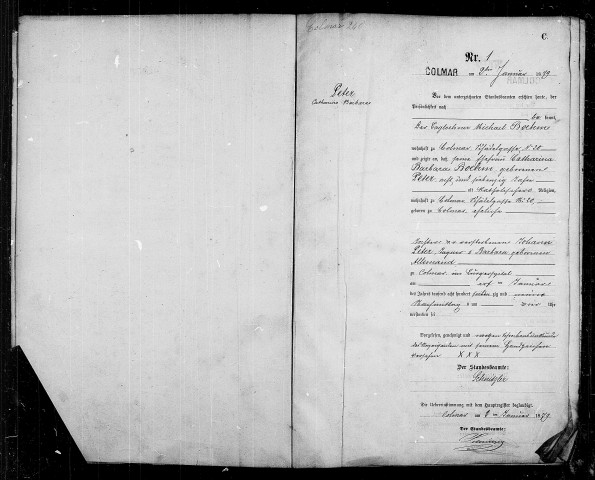 Colmar
C
Nr. 1
COLMAR am 2ten Januar 1879
Peter
Catharina Barbara
Vor dem unterzeichneten Standesbeamten erschien heute, der
Persönlichkeit nach
be kannt,
Der Taglöhner Michael Boehm
wohnhaft zu Colmar, Schädelgasse N. 20
und zeigte an, daß seine Ehefrau Catharina
Barbara Boehm geborenen
Peter, acht und siebenzig Jahre
alt, katholischer Religion,
wohnhaft zu Colmar Schädelgasse N. 20,
geboren zu Colmar
Tochter des verstorbenen Johann
Peter, und Barbara geborenen
Allemand
zu Colmar im Bürgerspital
am ersten Januar
des Jahres tausend acht hundert siebenzig und neun
Nachmittag s um vier Uhr
verstorben sei
Vorgelesen, genehmigt und wegen
des Anzeigenden mit seinem Handzeichen
versehen XXX
Der Standesbeamte.
Schnitzler
Die Uebereinstimmung mit dem Hauptregister beglaubigt.
Colmar am 2ten Januar 1879
Der Standesbeamte.